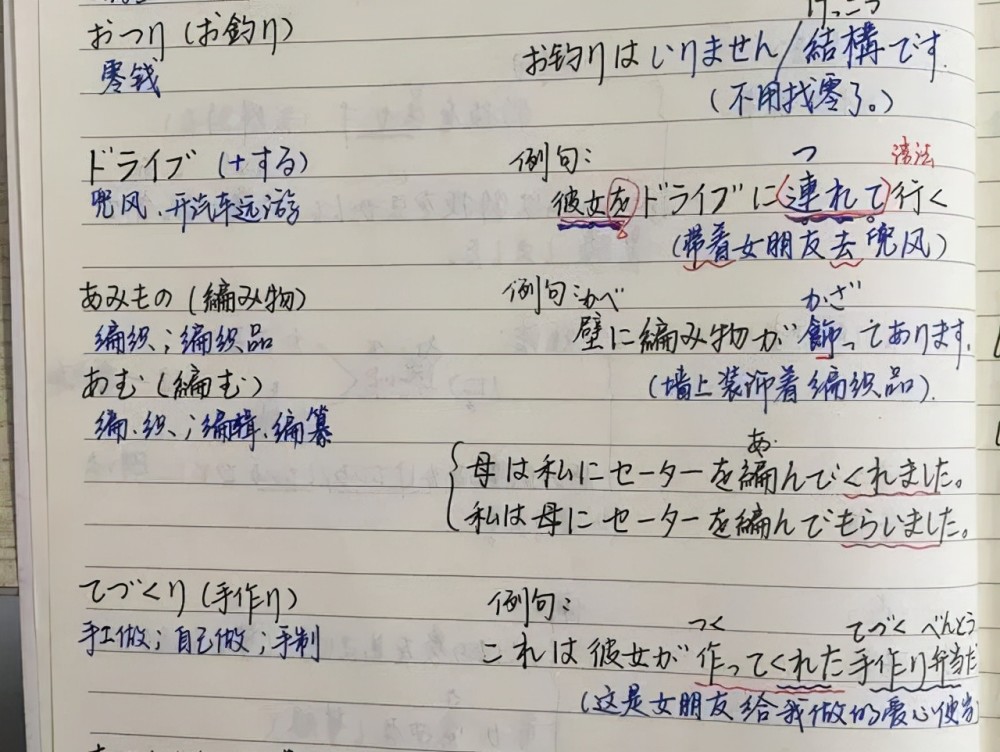 おつり(お釣り)
けっこう
零钱
お釣りはいりません/結構です.
(不用找零了。)
ドライブ (+する)
例句:
つ
兜风、开汽车远游
彼女をドライブに(連れて)行く
(带着女朋友去兜风)
あみもの(編み物)
例句:
かべ
かざ
编织;编织品
壁に編み物が飾ってあります.
あむ(編む)
(墙上装饰着编织品).
编、织、;编辑、编纂
あ
母は私にセーターを編んでくれました。
私は母にセーターを編んでもらいました。
てづくり(手作り)
例句:
つく
てづく べんとう
手工做;自己做;手制
これは彼女が作ってくれた手作り弁当だ
(这是女朋友给我做的爱心便当